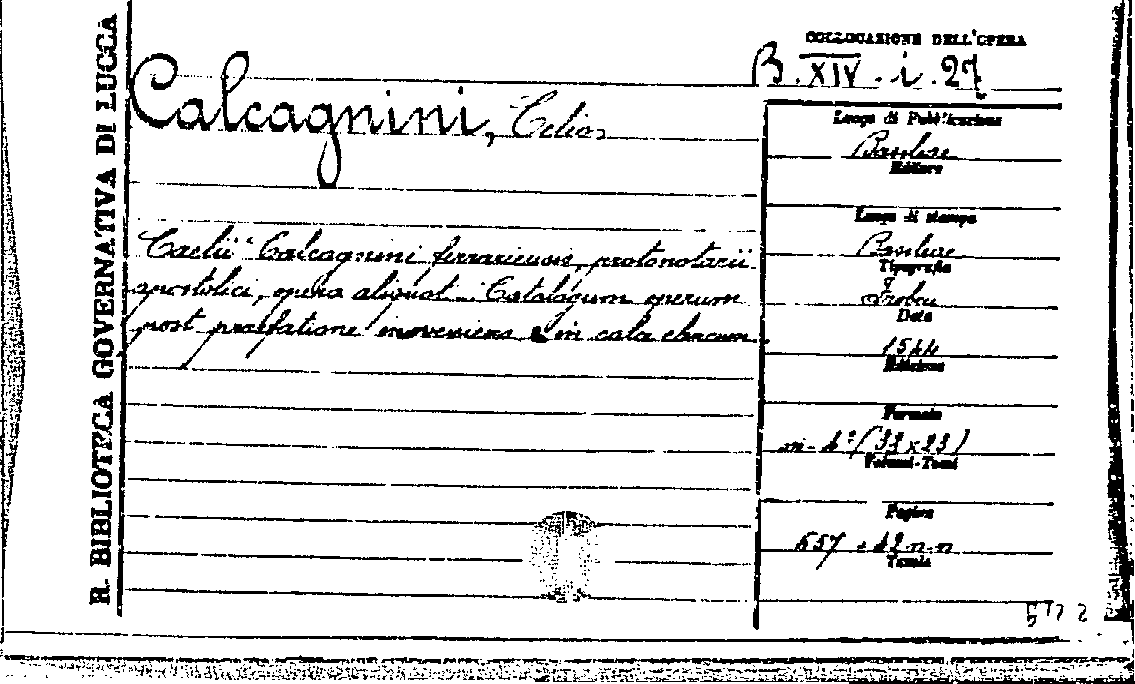 R. BIBLIOTECA GOVERNATIVA DI LUCCA
COLLOCAZIONE DELL'OPERA
B. XIV. i. 27
Calcagnini, Celio
Luogo di Pubblicazione
Basilea
Editore
Luogo di stampa
Caelii Calcagnini ferrariensis, protonotarii
Basileae
Tipografia
apostolici, opera aliquot. Catalogum operum
Froben
Data
post praefatione invenies & in calce
1544
Edizione
Formato
in-4° (33x23)
Volumi-Tomi
Pagine
557 + 42 n.n
Tavole